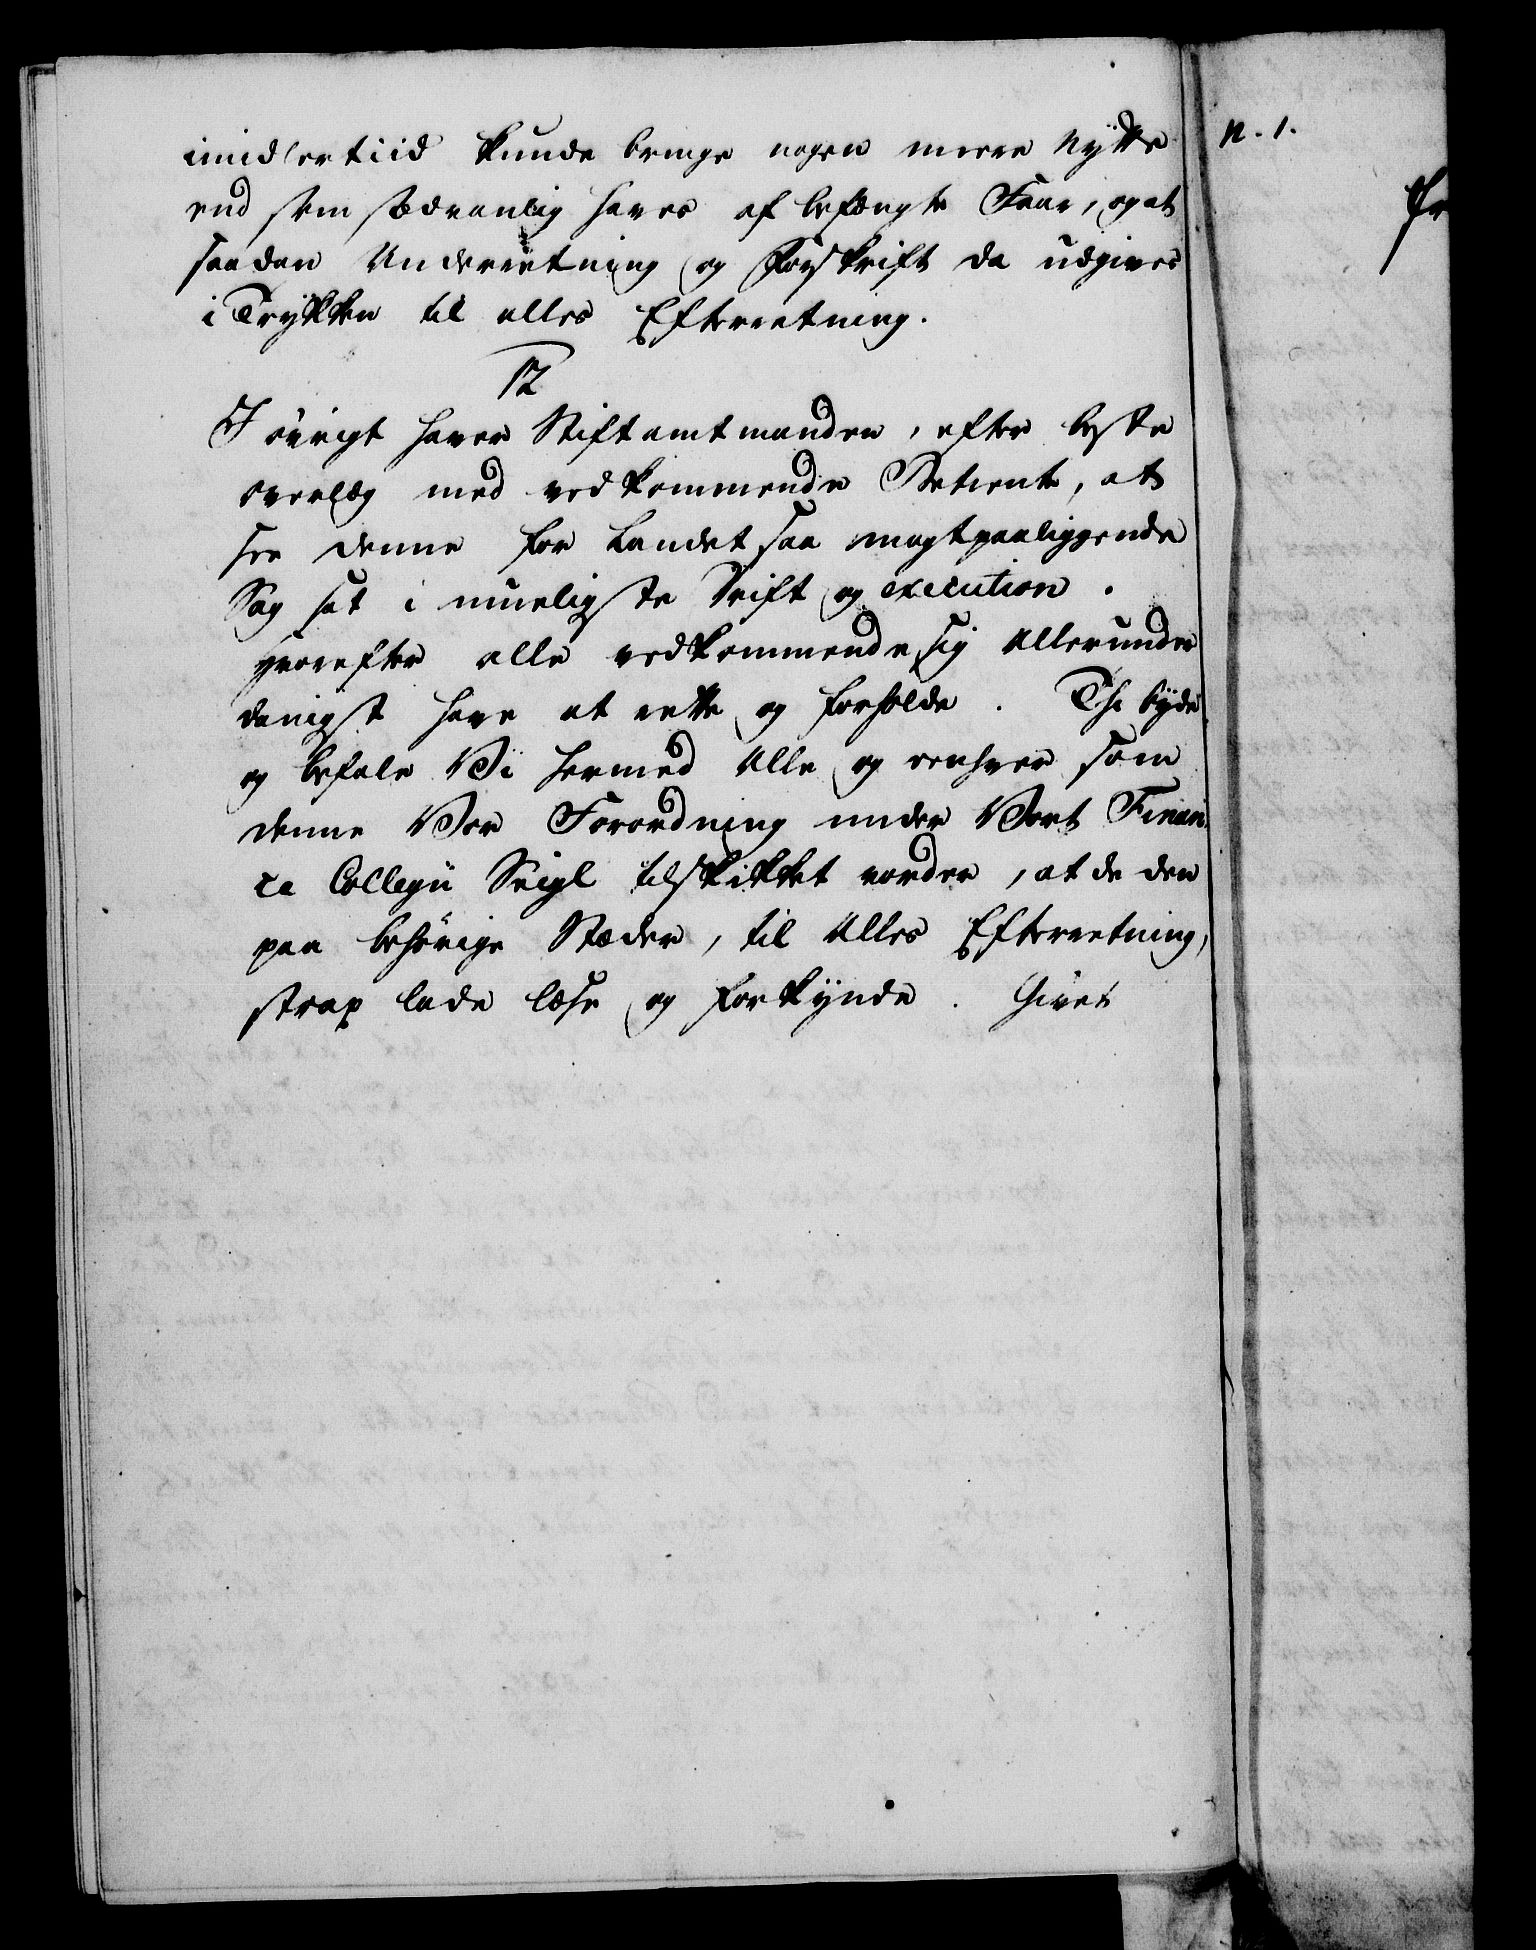 imidlertiid kunde bringe nogen meere Nytte
end som sædvanlig haves af befængte Faar, og at
saadan Underretning og Forskrift da udgives
i Trykken til alles Efterretning.
12
I øvrigt haver Stiftamtmanden, efter beste
overlæg med vedkommende Betiente, at
see denne for Landet saa magtpaaliggende
Sag sat i mueligste Drift og execution.
Hvorefter alle vedkommende sig Allerunder
danigst have at rette og forholde. Thi byde
og befale Vi hermed Alle og eenhver som
denne Vor Forordning under Vort Finan
ce Collegii Seigl tilskikket vorder, at de den
paa behørige Stæder, til Alles Efterretning,
strax lade læse og forkynde. Givet
N. 1.